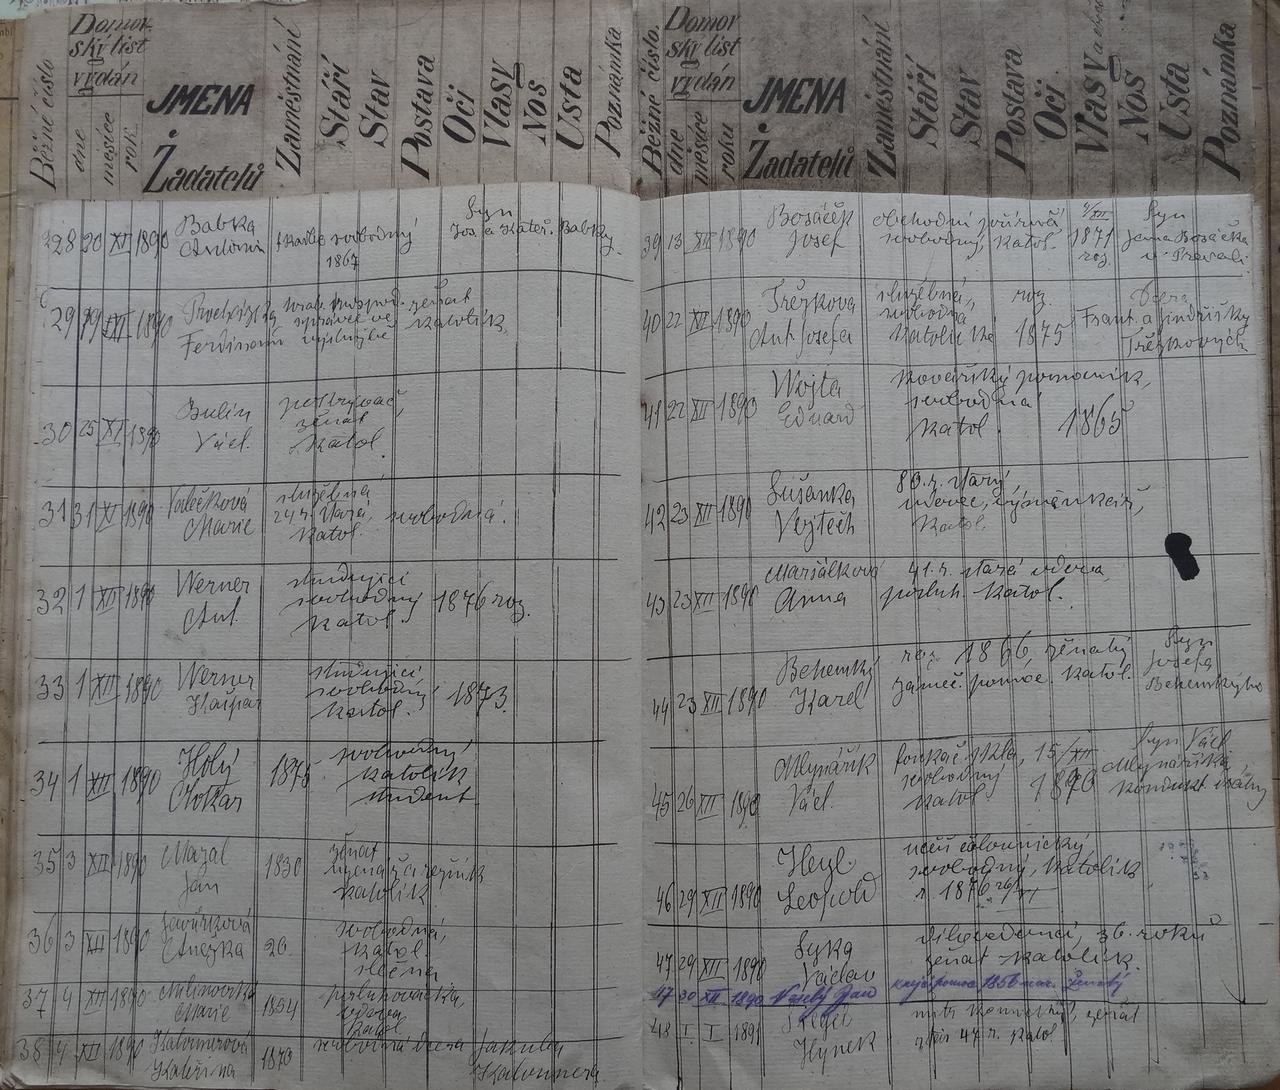 Běžné číslo
Domov-
ský list
vydán
dne
měsíce
rok
JMENA
Žadatelů
Zaměstnání
Stáří
Stav
Postava
Oči
Vlasy
Nos
Usta
Poznámka
28 20 XI 1890 Babka svobodný Syn
Antonín 1867 Jos. a Kateř. Babky.
29 29 XI 1890 ženat
Ferdinand správce ve výslužbě katolík
30 25 XI 1890 Bulín
Václ. ženat
katol.
31 31 XI 1890 Valečková služebná
Marie 24 r. stará, svobodná.
katol.
32 1 XII 1890 Werner studující
Ant. svobodný 1876 roz.
katol.
33 1 XII 1890 Werner studující
Kašpar svobodný 1873.
katol.
34 1 XII 1890 Holý 1875 svobodný
Otokar katolík
student
35 3 XII 1890 Mazal 1830 ženat
Jan uzenář a řezník
katolík
36 3 XII 1890 svobodná,
Anežka 20. katol.
slečna
37 4 XII 1890
Marie 1854 posluhovačka,
vdova
katol.
38 4 XII 1890 1873 svobodná dcera Jakuba
Kateřina
Běžné číslo.
Domov
ský list
vydán
dne
měsíce
roku
JMENA
Žadatelů
Zaměstnání
Stáří
Stav
Postava
Oči
Vlasy
Nos
Usta
Poznámka
39 13 XII 1890 Bosáček obchodní 4/XII Syn
Josef svobodný, katol. 1871 Jana Bosáčka
roz. v
40 22 XII 1890 Třězkova služebná, roz. Dcera
Ant. Josefa svobodná Frant. a Jindřišky
katolička 1875 Třězkových
41 22 XII 1890 Wojta kovářský pomocník,
Eduard svobodná
katol. 1865
42 23 XII 1890 Sušanka 80. r. starý,
Vojtěch vdovec, výměnkář,
katol.
43 23 XII 1890 Maršálková 41. r. stará vdova,
Anna posluh. katol.
44 23 XII 1890 Behemský roz. 1866, ženatý Syn
Karel zámeč. pomoc. katol. Josefa
Behemskýho
45 26 XII 1890 Mlynářík foukač skla, 15/XII Syn Václ.
Václ. svobodný 1870 Mlynáříka,
katol. kondukt. dráhy
46 29 XII 1890 Heyl učeň čalounický,
Leopold svobodný, katolík
r. 1876 26/XI
47 29 XII 1890 Syka dílovedoucí, 36. roků
Václav ženat katolík.
47 30 XII 1890 Veselý Jan krejč. pomoc 1856 nar. ženatý
48 I. I 1891 ženat
Hynek stár 47 r. katol